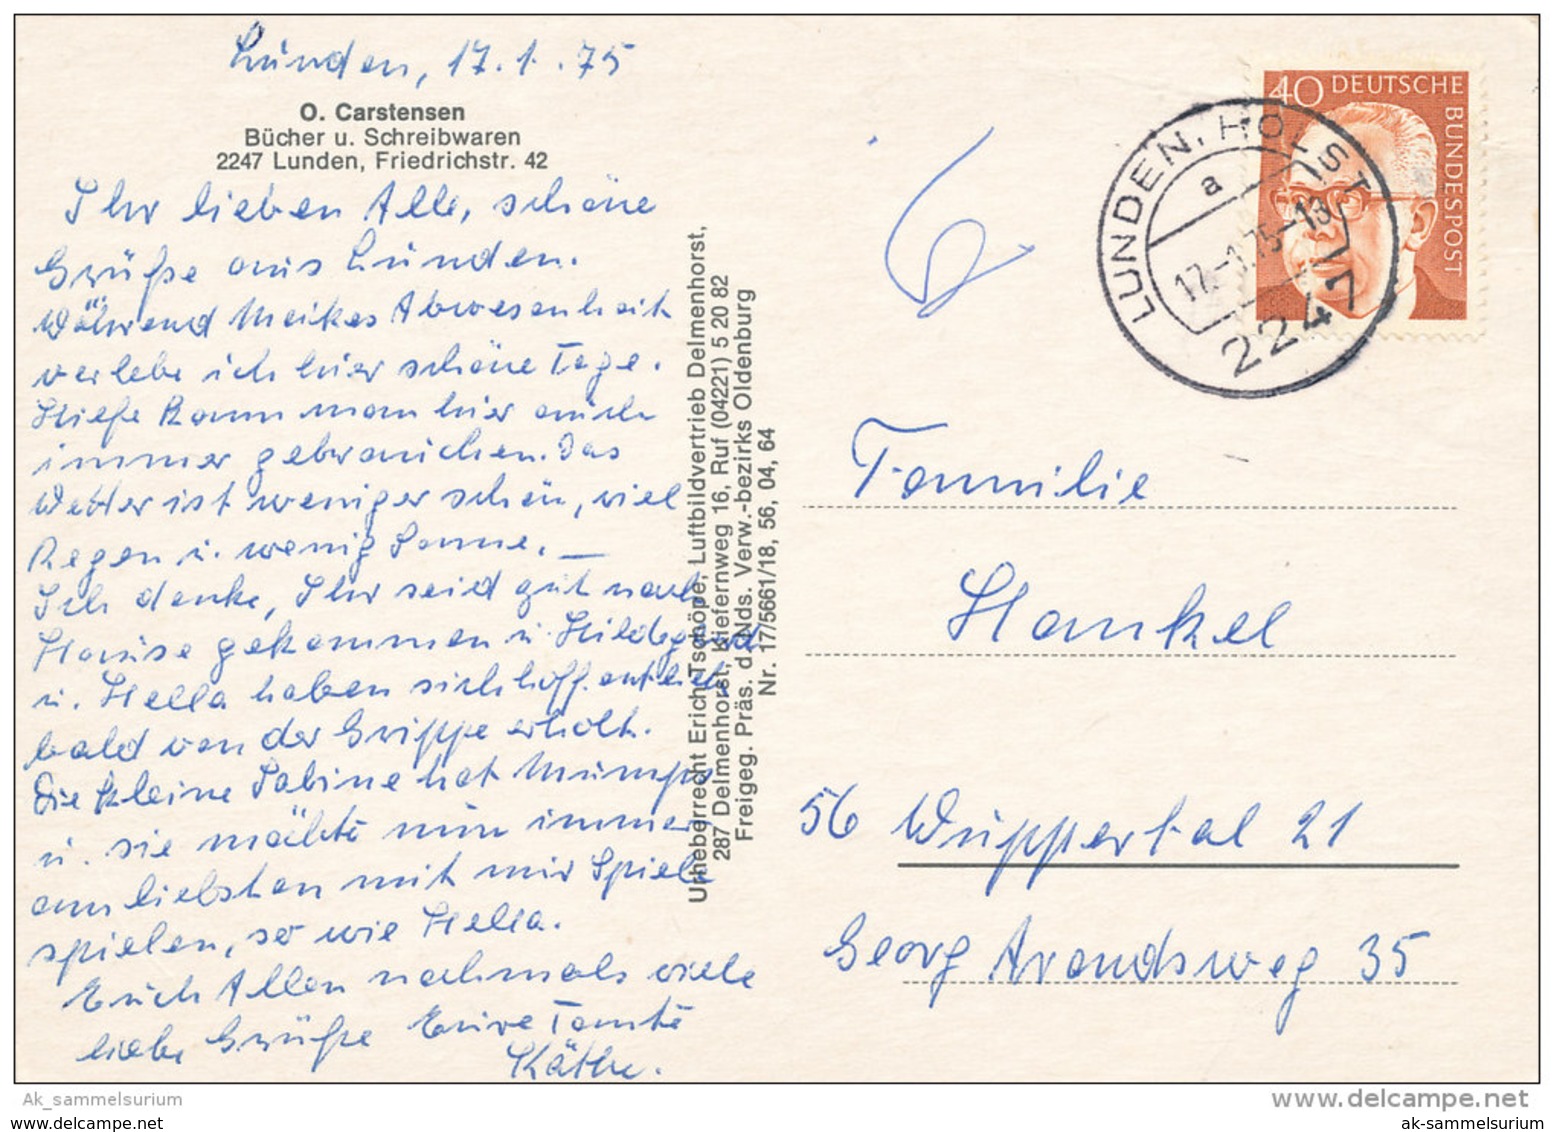 Lunden, 17.1.75
O. Carstensen
Bücher u. Schreibwaren
2247 Lunden, Friedrichstr. 42
Ihr lieben Alle, schöne
Grüße aus Lunden.
Während Meikes Abwesenheit
verlebe ich hier schöne Tage.
Hilfe kann man hier auch
immer gebrauchen. Das
Wetter ist weniger schön, viel
Regen u. wenig Sonne. —
Ich denke, Ihr seid gut nach
Hause gekommen u. Hildegard
u. Hella haben sich hoffentlich
bald von der Grippe erholt.
Die kleine Sabine hat Mumps
u. sie möchte nun immer
am liebsten mit mir Spiele
spielen, so wie Hella.
Euch Allen nochmals viele
liebe Grüße Eure Tante
Käthe.
Urheberrecht Erich Tschöpe, Luftbildvertrieb Delmenhorst,
287 Delmenhorst, Kiefernweg 16, Ruf (04221) 5 20 82
Freigeg. Präs. d. Nds. Verw.-bezirks Oldenburg
Nr. 17/5661/18, 56, 04, 64
40 DEUTSCHE
BUNDESPOST
LUNDEN, HOLST
a
17.-1.75-13
2247
Familie
Hankel
56 Wuppertal 21
Georg Arendsweg 35
Ak_sammelsurium
www.delcampe.net
ak-sammelsurium
ak-sammelsurium